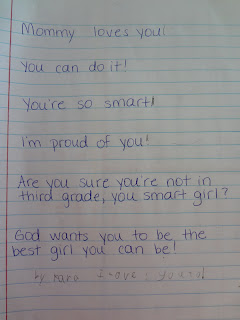 Mommy loves you!
You can do it!
You're so smart!
I'm proud of you!
Are you sure you're not in
third grade, you smart girl?
God wants you to be the
best girl you can be!